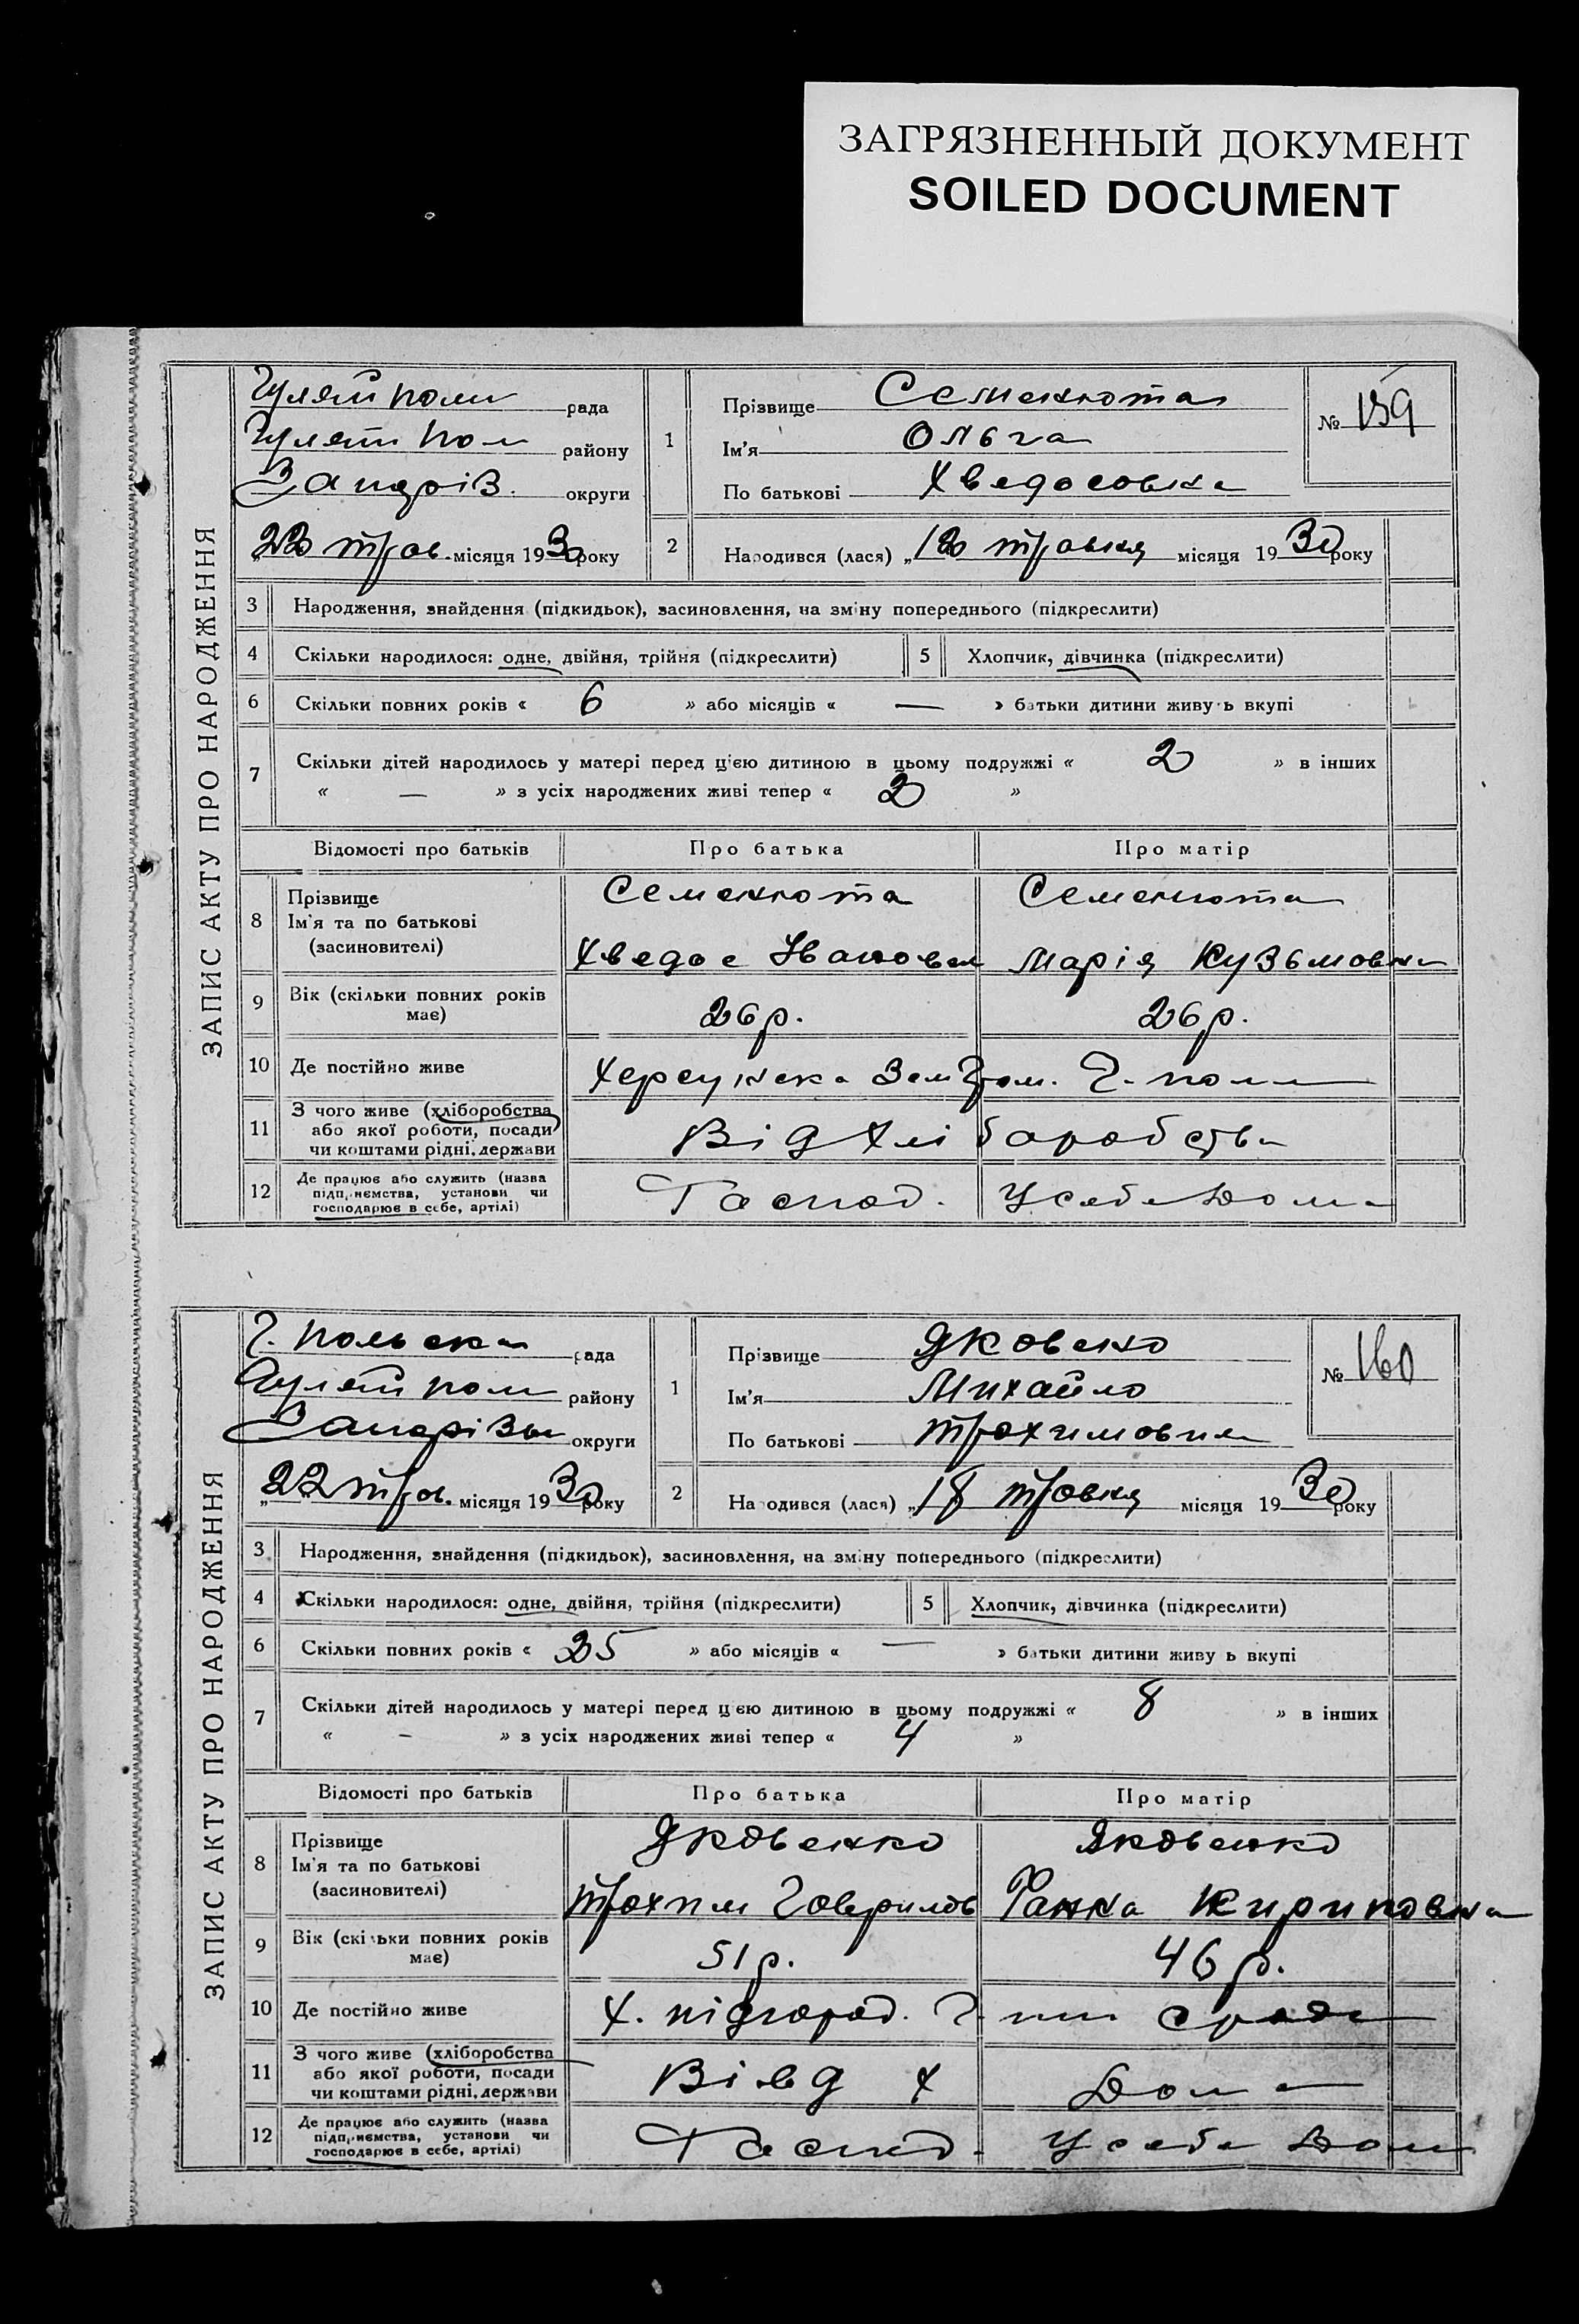 ЗАГРЯЗНЕННЫЙ ДОКУМЕНТ
SOILED DOCUMENT
ЗАПИС АКТУ ПРО НАРОДЖЕННЯ
Гуляйполи рада
Гуляй Пол району
Запоріз. округи
22 трав. місяця 1930 року
1 Прізвище Семенюта
Ім'я Ольга
По батькові Хведосовна
№ 159
2 Народився (лася) „ травня місяця 1930 року
3 Народження, знайдення (підкидьок), засиновлення, на зміну попереднього (підкреслити)
4 Скільки народилося: одне, двійня, трійня (підкреслити) 5 Хлопчик, дівчинка (підкреслити)
6 Скільки повних років « 6 » або місяців « — » батьки дитини живуть вкупі
7 Скільки дітей народилось у матері перед цією дитиною в цьому подружжі « 2 » в інших
« — » з усіх народжених живі тепер « 2 »
Відомості про батьків Про батька Про матір
8 Прізвище Семенюта Семенюта
Ім'я та по батькові
(засиновителі) Хведос Іванович Марія Кузьмовна
9 Вік (скільки повних років має) 26 р. 26 р.
10 Де постійно живе Г. поли
11 З чого живе (хліборобства
або якої роботи, посади Від Хліборобства
чи коштами рідні, держави
12 Де працює або служить (назва
підприємства, установи чи Господ. У себе Дома
господарює в себе, артілі)
ЗАПИС АКТУ ПРО НАРОДЖЕННЯ
Г. Польска рада
Гуляй поли району
Запорізьк округи
„22" трав. місяця 1930 року
1 Прізвище Яковенко
Ім'я Михайло
По батькові Трохимович
№ 160
2 Народився (лася) „18 травня місяця 1930 року
3 Народження, знайдення (підкидьок), засиновлення, на зміну попереднього (підкреслити)
4 Скільки народилося: одне, двійня, трійня (підкреслити) 5 Хлопчик, дівчинка (підкреслити)
6 Скільки повних років « 25 » або місяців « — » батьки дитини живуть вкупі
7 Скільки дітей народилось у матері перед цією дитиною в цьому подружжі « 8 » в інших
« — » з усіх народжених живі тепер « 4 »
Відомості про батьків Про батька Про матір
8 Прізвище Яковенко Яковенко
Ім'я та по батькові
(засиновителі) Трохим Говрилов Ганна Кириловна
9 Вік (скільки повних років має) 51 р. 46 р.
10 Де постійно живе Х. підгород. Г.
11 З чого живе (хліборобства
або якої роботи, посади Х Дома
чи коштами рідні, держави
12 Де працює або служить (назва
підприємства, установи чи Господ. У себе Дома
господарює в себе, артілі)